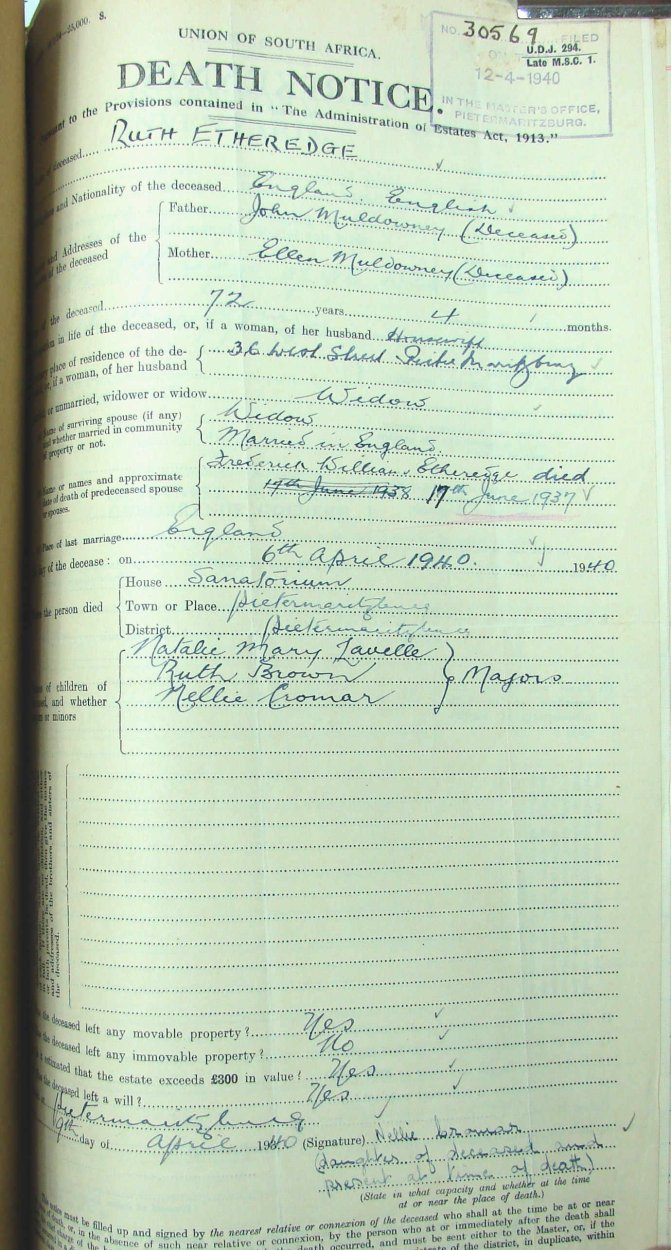 25,000. S.
UNION OF SOUTH AFRICA.
NO. 30569 FILED
U.D.J. 294.
Late M.S.C. 1.
12-4-1940
IN THE MASTER'S OFFICE,
PIETERMARITZBURG.
DEATH NOTICE.
to the Provisions contained in "The Administration of Estates Act, 1913."
of deceased RUTH ETHEREDGE
and Nationality of the deceased England. English
and Addresses of the
of the deceased
Father John Muldowney (Deceased)
Mother Ellen Muldowney (Deceased)
the deceased 72 years 4 months.
in life of the deceased, or, if a woman, of her husband Housewife
place of residence of the de-
if a woman, of her husband
36 West Street Pietermaritzburg
or unmarried, widower or widow Widow
Name of surviving spouse (if any)
and whether married in community
of property or not.
Widow
Married in England
or names and approximate
date of death of predeceased spouse
or spouses.
Frederick William Etheredge died
17th June 1938 17th June 1937
Place of last marriage England
of the decease: on 6th April 1940. 1940
the person died
House Sanatorium
Town or Place Pietermaritzburg
District Pietermaritzburg
of children of
and whether
or minors
Natalie Mary Lavelle
Ruth Brown Majors
Nellie Cromar
and addresses of the brothers and sisters of
the deceased.
the deceased left any movable property? Yes
the deceased left any immovable property? No
estimated that the estate exceeds £300 in value? Yes
the deceased left a will? Yes
at Pietermaritzburg
9th day of April 1940 (Signature) Nellie Cromar
(daughter of deceased and
present at time of death)
(State in what capacity and whether at the time
at or near the place of death.)
must be filled up and signed by the nearest relative or connexion of the deceased who shall at the time be at or near
of death, or, in the absence of such near relative or connexion, by the person who at or immediately after the death shall
death occurred, and must be sent either to the Master, or, if the
of the district, in duplicate, within